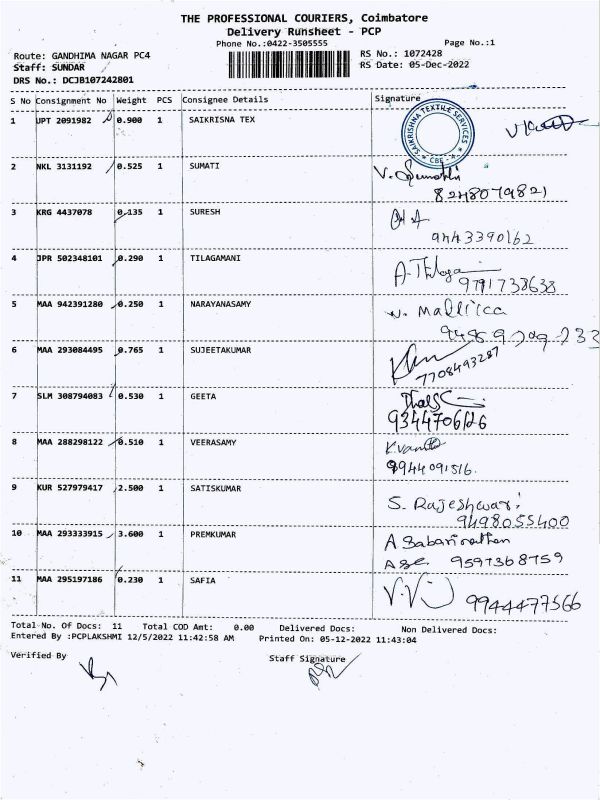 THE PROFESSIONAL COURIERS, Coimbatore
Delivery Runsheet - PCP
Phone No.:0422-3505555 Page No.:1
Route: GANDHIMA NAGAR PC4 RS No.: 1072428
Staff: SUNDAR RS Date: 05-Dec-2022
DRS No.: DCJB107242801
S No Consignment No Weight PCS Consignee Details Signature
1 JPT 2091982 0.900 1 SAIKRISNA TEX
SAIKRISHNA TEXTILE SERVICES
CBE
2 NKL 3131192 0.525 1 SUMATI V. Sumathi
8248079821
3 KRG 4437078 0.135 1 SURESH
9443390162
4 JPR 502348101 0.290 1 TILAGAMANI A. Thilaga
9791738638
5 MAA 942391280 0.250 1 NARAYANASAMY N. Mallica
6 MAA 293084495 0.765 1 SUJEETAKUMAR
7708493287
7 SLM 308794083 0.530 1 GEETA
9344706126
8 MAA 288298122 0.510 1 VEERASAMY
9944091516.
9 KUR 527979417 2.500 1 SATISKUMAR S. Rajeshwari
9498055400
10 MAA 293333915 3.600 1 PREMKUMAR A Sabarinathan
9597368759
11 MAA 295197186 0.230 1 SAFIA
9944477566
Total No. Of Docs: 11 Total COD Amt: 0.00 Delivered Docs: Non Delivered Docs:
Entered By :PCPLAKSHMI 12/5/2022 11:42:58 AM Printed On: 05-12-2022 11:43:04
Verified By Staff Signature